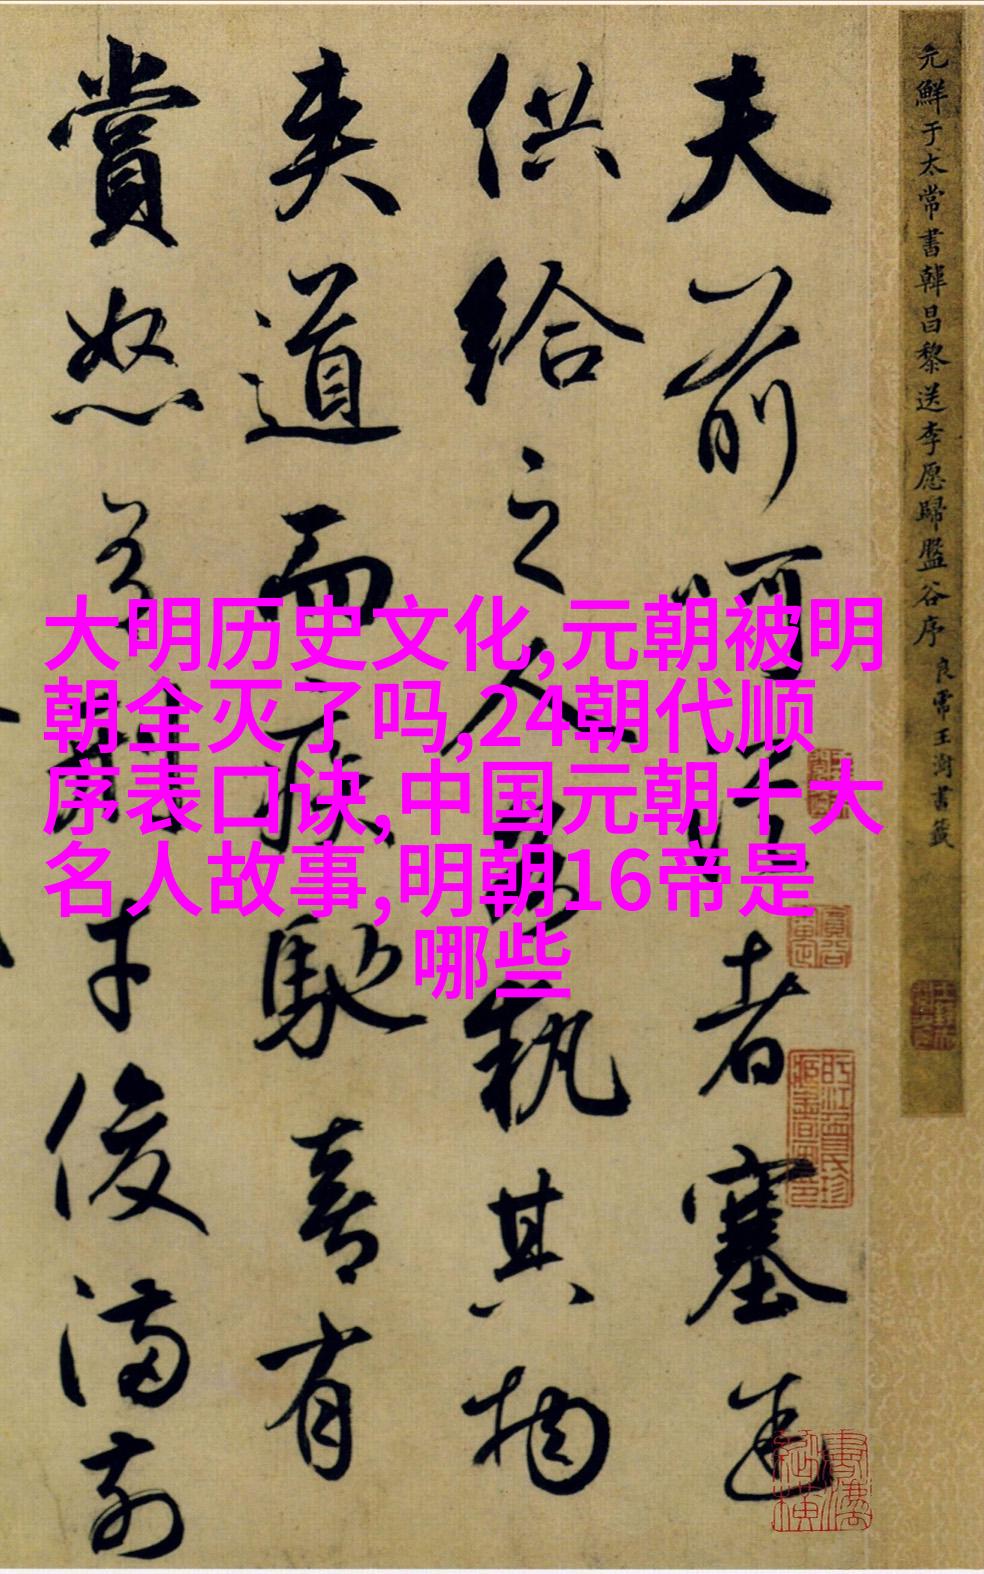 元鮮于太常書韓昌黎送李愿歸盤谷序 良常王澍書籤
夫前呵 者塞途
供給之人 執其物
夾道而疾馳喜有
賞怒 刑才俊滿前
大明历史文化,元朝被明
朝全灭了吗,24朝代顺
序表口诀,中国元朝十大
名人故事,明朝16帝是
哪些